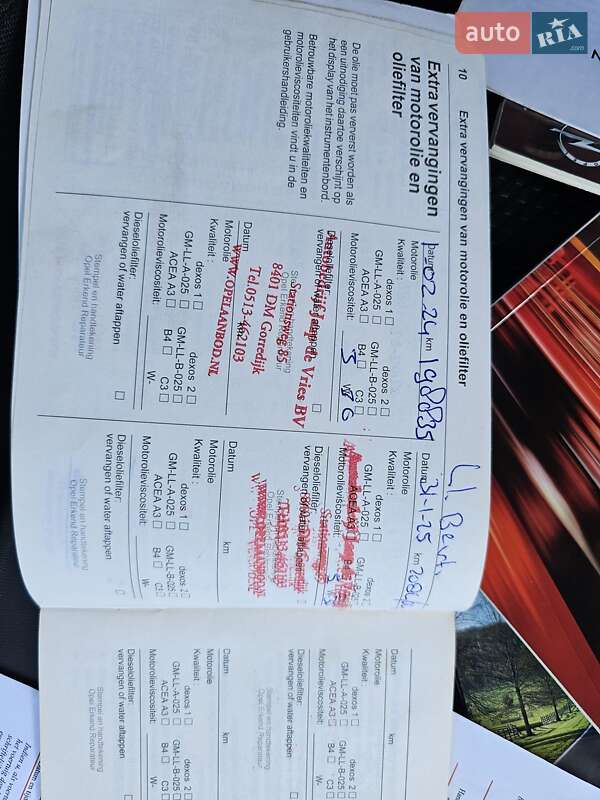 auto RIA.com
10
Extra vervangingen van motorolie en oliefilter
Extra vervangingen
van motorolie en
oliefilter
De olie moet pas ververst worden als
een uitnodiging daartoe verschijnt op
het display van het instrumentenbord.
Betrouwbare motoroliekwaliteiten en
motorolieviscositeiten vindt u in de
gebruikershandleiding.
Datum 02 24 km 198835
Motorolie
Kwaliteit:
dexos 1 dexos 2
GM-LL-A-025 GM-LL-B-025
ACEA A3 B4 C3
Motorolieviscositeit: 5 W-
Dieseloliefilter:
vervangen of water aftappen
Autobedrijf Jaap de Vries BV
Stationsweg 85
8401 DM Gorredijk
Tel. 0513-462103
WWW.OPELAANBOD.NL
Datum km
Motorolie
Kwaliteit:
dexos 1 dexos 2
GM-LL-A-025 GM-LL-B-025
ACEA A3 B4 C3
Motorolieviscositeit: W-
Dieseloliefilter:
vervangen of water aftappen
Stempel en handtekening
Opel Erkend Reparateur
Datum 31-1-25 km
Motorolie
Kwaliteit:
dexos 1 dexos 2
GM-LL-A-025 GM-LL-B-025
ACEA A3 B4
Motorolieviscositeit:
Dieseloliefilter:
vervangen of water aftappen
Datum km
Motorolie
Kwaliteit:
dexos 1 dexos 2
GM-LL-A-025 GM-LL-B-025
ACEA A3 B4 C3
Motorolieviscositeit: W-
Dieseloliefilter:
vervangen of water aftappen
Stempel en handtekening
Opel Erkend Reparateur
Datum km
Motorolie
Kwaliteit:
dexos 1 dexos 2
GM-LL-A-025 GM-LL-B-025
ACEA A3 B4 C3
Motorolieviscositeit: W-
Dieseloliefilter:
vervangen of water aftappen
Stempel en handtekening
Opel Erkend Reparateur
Datum km
Motorolie
Kwaliteit:
dexos 1 dexos 2
GM-LL-A-025 GM-LL-B-025
ACEA A3 B4 C3
Motorolieviscositeit: W-
Dieseloliefilter:
vervangen of water aftappen
Stempel en handtekening
Opel Erkend Reparateur